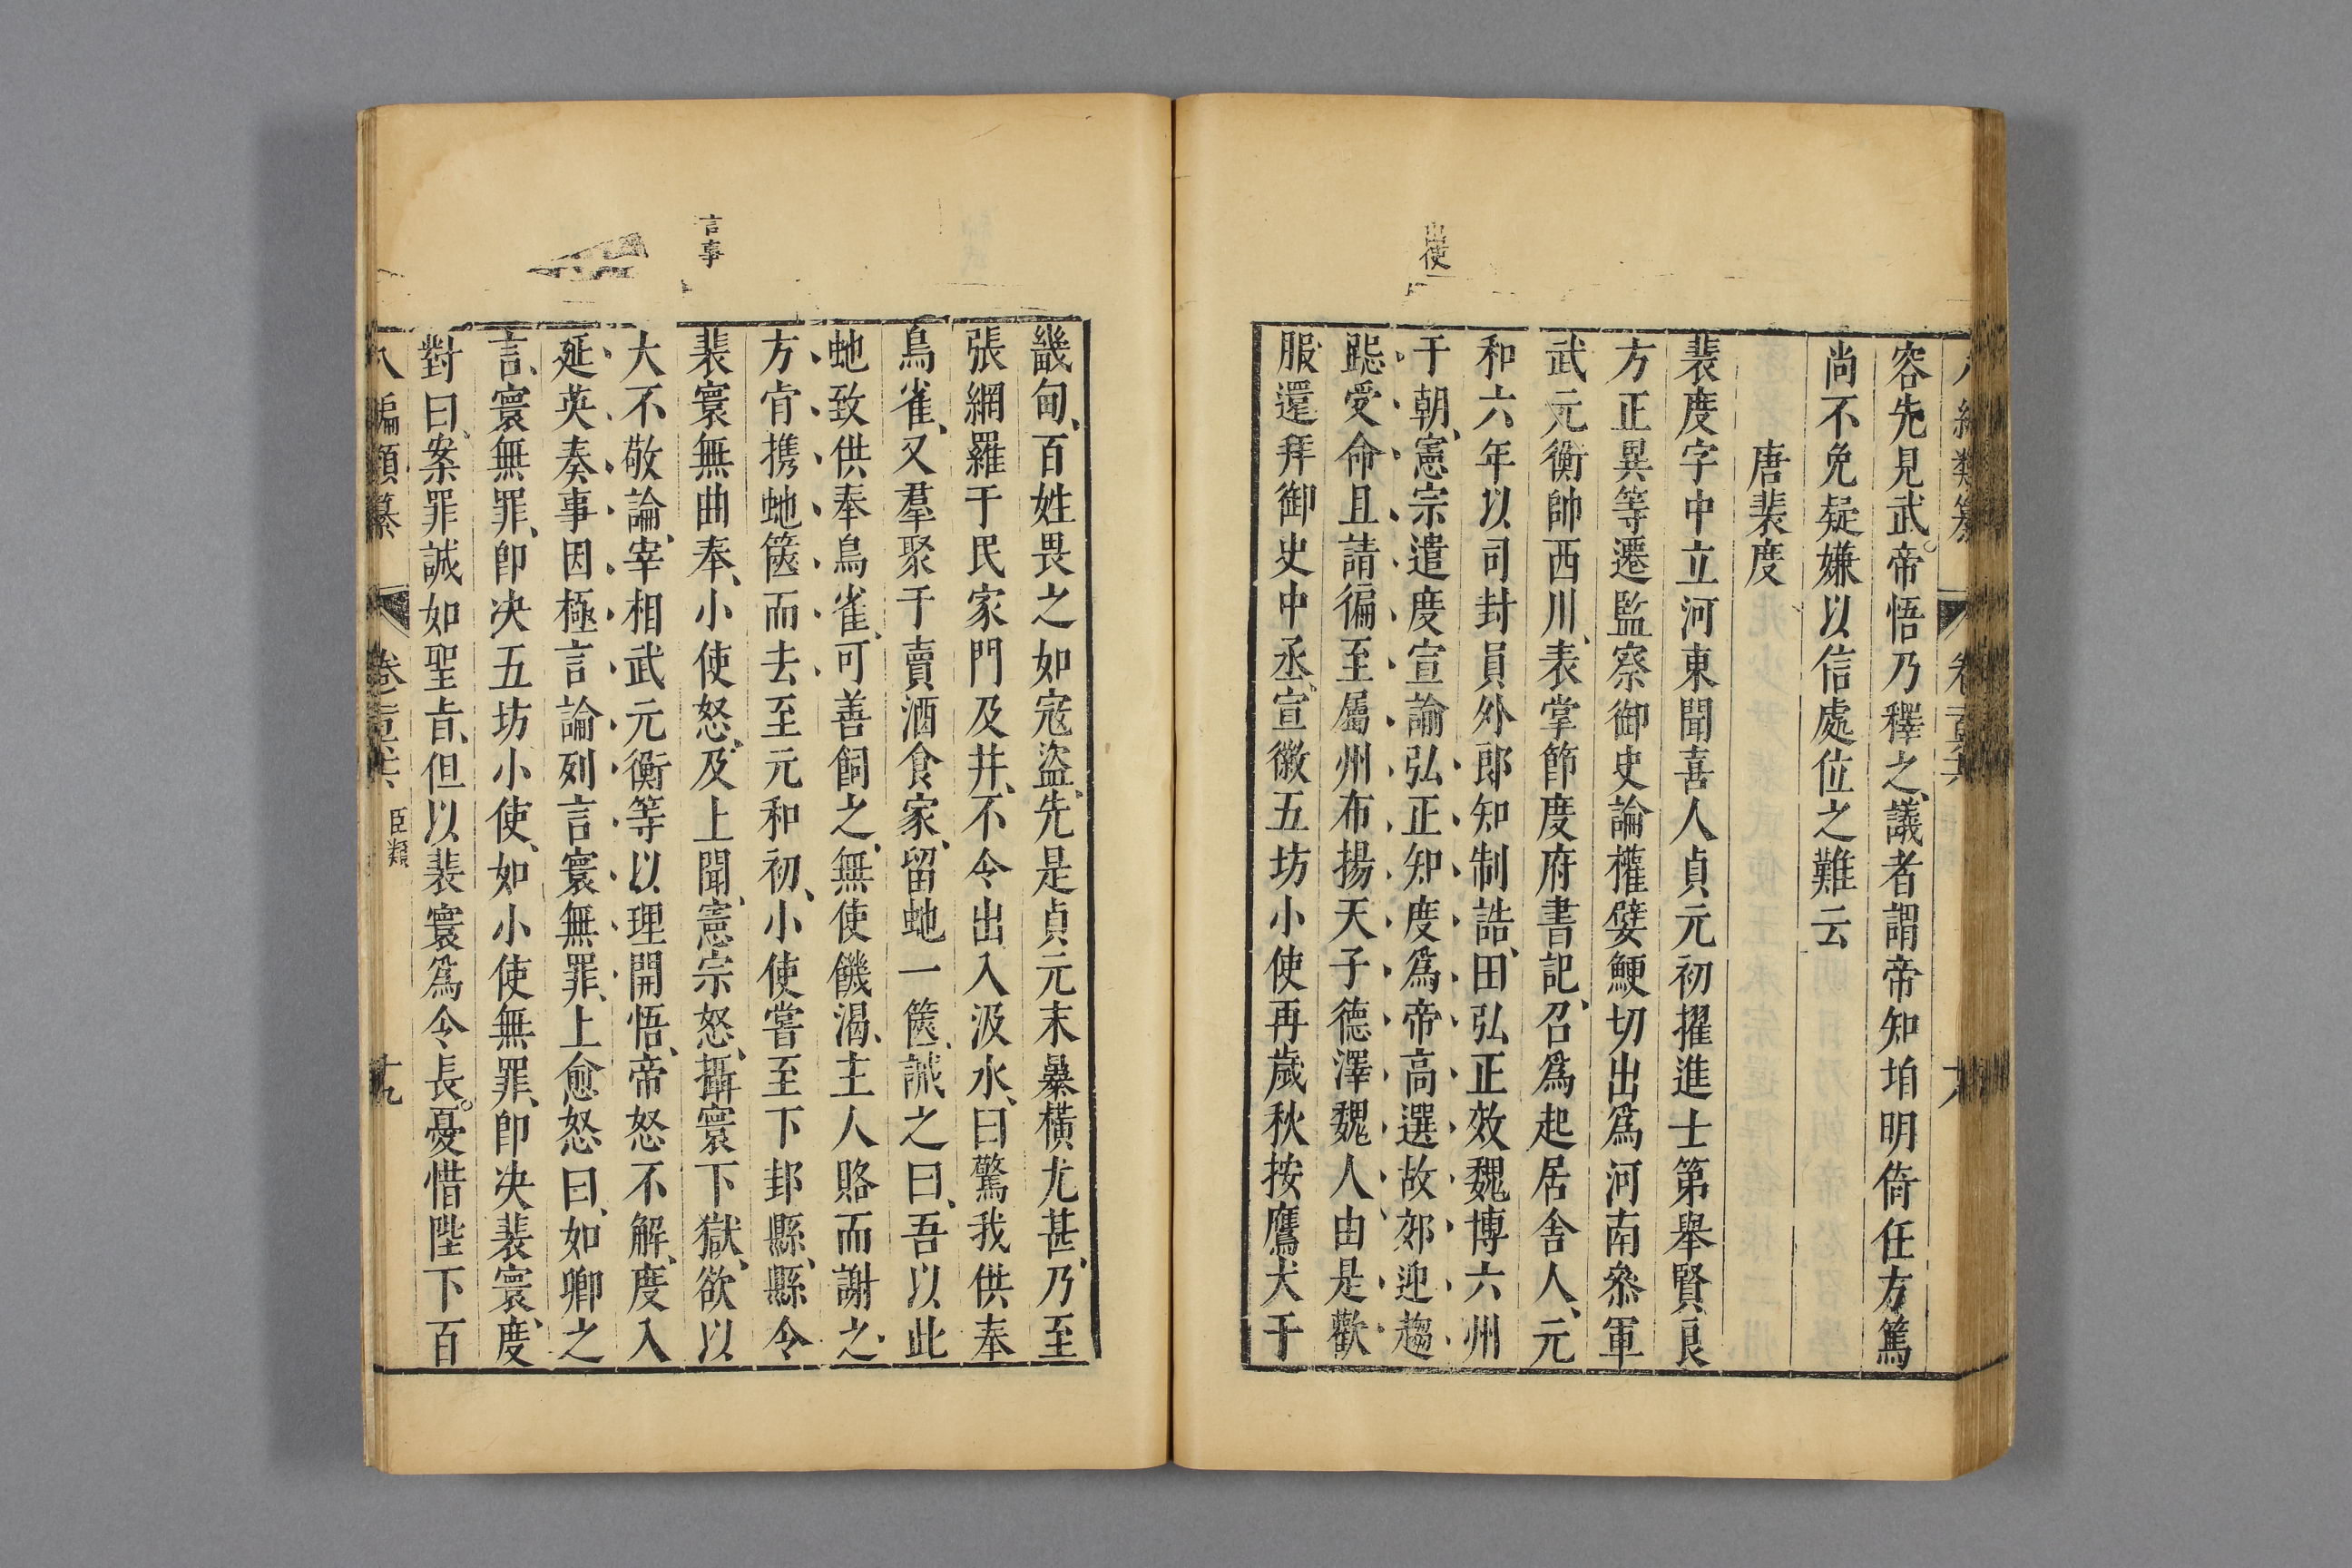 容先見武帝悟乃釋之議者謂帝知垍明倚任方篤
尚不免疑嫌以信處位之難云
唐裴度
裴度字中立河東聞喜人貞元初擢進士第舉賢良
方正異等遷監察御史論權嬖鯁切出爲河南叅軍
武元衡帥西川表掌節度府書記召爲起居舍人元
和六年以司封員外郎知制誥田弘正效魏博六州
于朝憲宗遣度宣諭弘正知度爲帝高選故郊迎趨
跽受命且請徧至屬州布揚天子德澤魏人由是歡
服還拜御史中丞宣徽五坊小使再歲秋按鷹犬于
出使
畿甸百姓畏之如寇盜先是貞元末暴橫尤甚乃至
張網羅于民家門及井不令出入汲水曰驚我供奉
鳥雀又羣聚于賣酒食家留虵一篋誡之曰吾以此
虵致供奉鳥雀可善飼之無使饑渴主人賂而謝之
方肯携虵篋而去至元和初小使嘗至下邽縣縣令
裴寰無曲奉小使怒及上聞憲宗怒攝寰下獄欲以
大不敬論宰相武元衡等以理開悟帝怒不解度入
延英奏事因極言論列言寰無罪上愈怒曰如卿之
言寰無罪卽决五坊小使如小使無罪卽决裴寰度
對曰案罪誠如聖旨但以裴寰爲令長憂惜陛下百
言事
八編類纂 卷二百六 臣類 十九